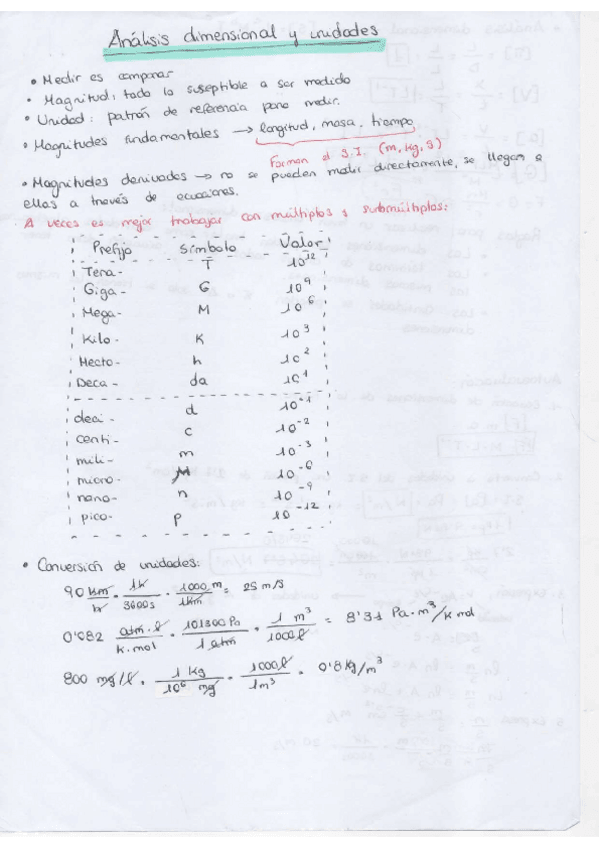 Análisis dimensional y unidades
• Medir es comparar
• Magnitud: todo lo susceptible a ser medido
• Unidad: patrón de referencia para medir.
• Magnitudes fundamentales → longitud, masa, tiempo
Forman el S.I. (m, kg, s)
• Magnitudes derivadas → no se pueden medir directamente, se llegan a
ellas a través de ecuaciones.
A veces es mejor trabajar con múltiplos y submúltiplos:
Prefijo Símbolo Valor
Tera- T 10^12
Giga- G 10^9
Mega- M 10^6
Kilo- K 10^3
Hecto- h 10^2
Deca- da 10^1
deci- d 10^-1
centi- c 10^-2
mili- m 10^-3
micro- M 10^-6
nano- n 10^-9
pico- p 10^-12
• Conversión de unidades:
90 km/h · 1h/3600s · 1000m/1km = 25 m/s
0'082 atm·l/k·mol · 101300 Pa/1 atm · 1 m^3/1000 l = 8'31 Pa·m^3/k mol
800 mg/l · 1 kg/10^6 mg · 1000 l/1m^3 = 0'8 kg/m^3